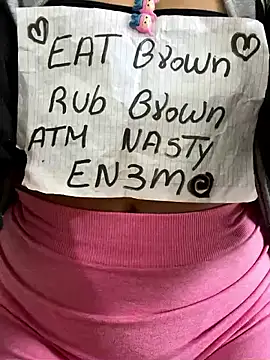 EAT Brown
RUB Brown
ATM NASTY
EN3M@